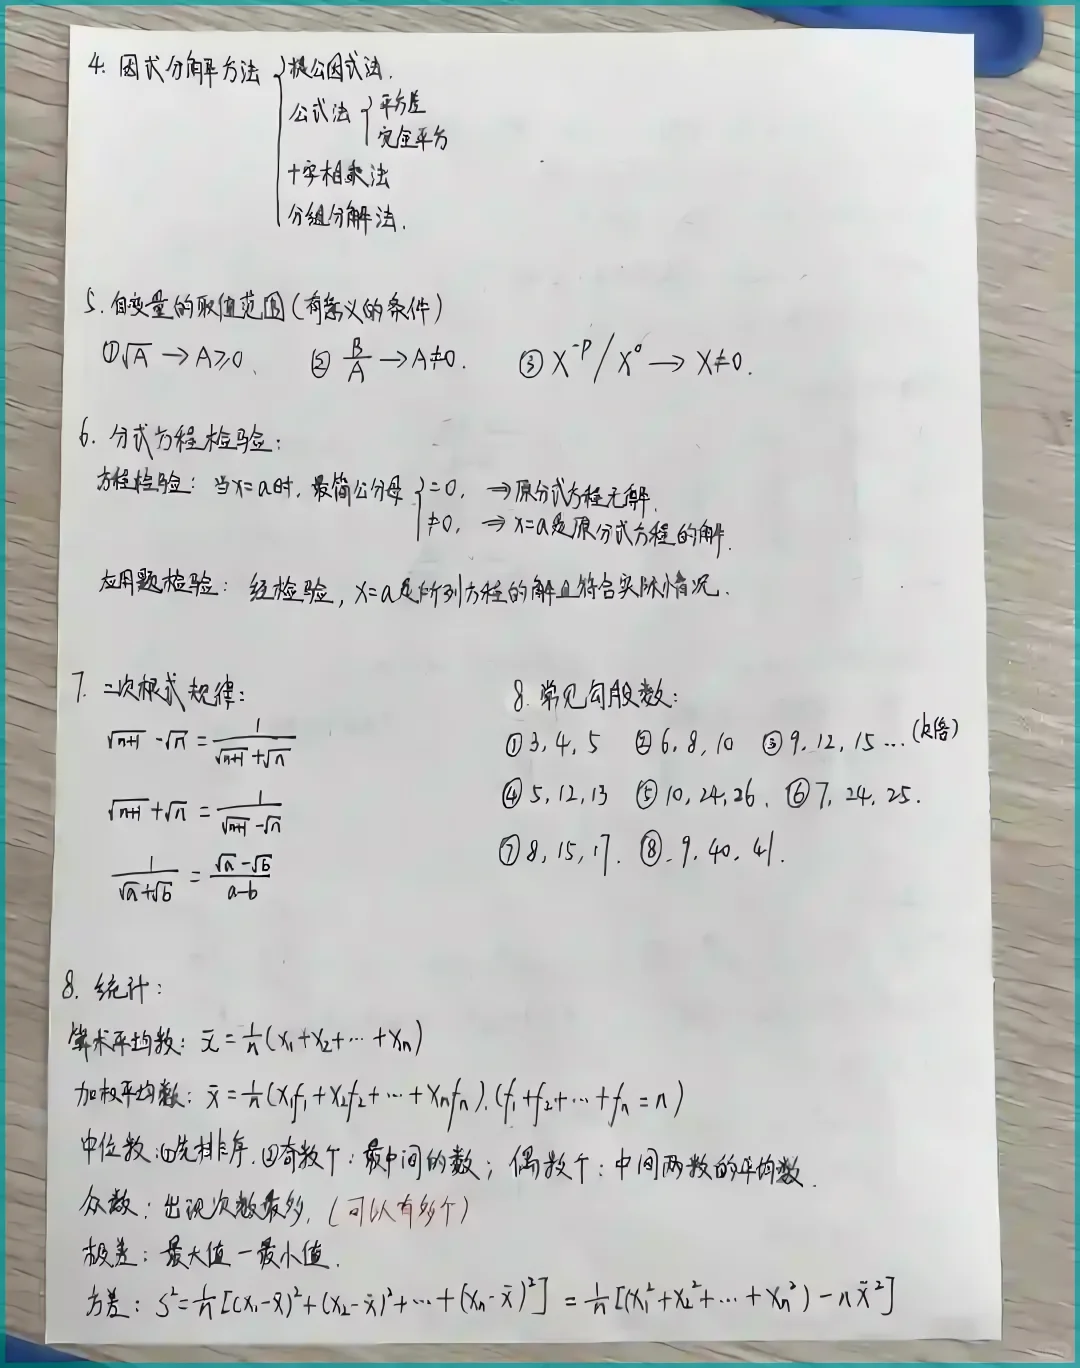 4. 因式分解方法 { 提公因式法.
公式法 { 平方差
完全平方
十字相乘法
分组分解法.
5. 自变量的取值范围(有意义的条件)
① √A → A≥0、 ② B/A → A≠0. ③ X⁻ᵖ / X⁰ → X≠0.
6. 分式方程检验:
方程检验: 当x=a时, 最简公分母 { =0, ⇒ 原分式方程无解.
≠0, ⇒ x=a是原分式方程的解.
应用题检验: 经检验, x=a是所列方程的解且符合实际情况.
7. 二次根式规律:
√(n+1) - √n = 1/(√(n+1)+√n)
√(n+1) + √n = 1/(√(n+1)-√n)
1/(√a+√b) = (√a-√b)/(a-b)
8. 常见勾股数:
① 3, 4, 5 ② 6, 8, 10 ③ 9, 12, 15 … (k倍)
④ 5, 12, 13 ⑤ 10, 24, 26. ⑥ 7, 24, 25.
⑦ 8, 15, 17. ⑧. 9, 40, 41.
8. 统计:
算术平均数: x̄ = 1/n (x₁+x₂+…+xₙ)
加权平均数: x̄ = 1/n (x₁f₁+x₂f₂+…+xₙfₙ). (f₁+f₂+…+fₙ=n)
中位数: ①先排序. ②奇数个: 最中间的数; 偶数个: 中间两数的平均数.
众数: 出现次数最多. (可以有多个)
极差: 最大值-最小值.
方差: S² = 1/n [(x₁-x̄)²+(x₂-x̄)²+…+(xₙ-x̄)²] = 1/n [(x₁²+x₂²+…+xₙ²)-nx̄²]